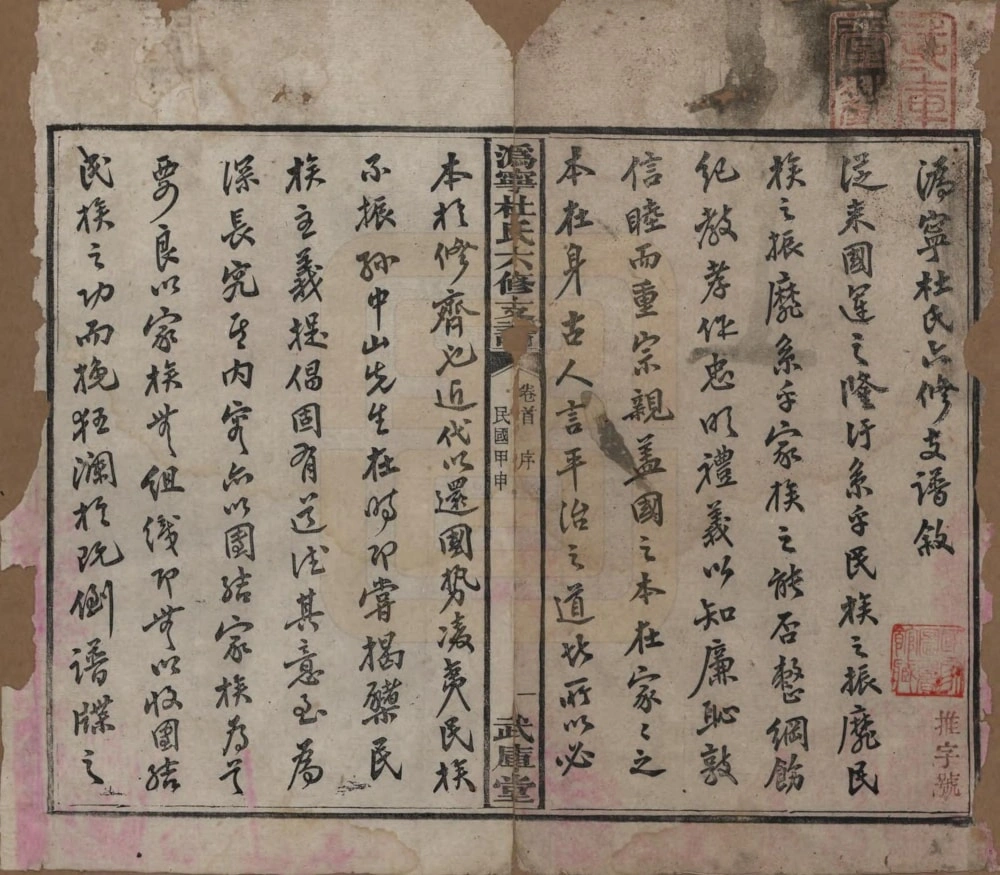 溈寧杜氏六修支譜敘
從來國運之隆汙系乎民族之振靡民
族之振靡系乎家族之能否整綱飭
紀教孝作忠明禮義以知廉恥敦
信睦而重宗親蓋國之本在家家之
本在身古人言平治之道此所以必
溈寧杜氏六修支譜
卷首 序
民國甲申
一
武庫堂
本於修齊也近代以還國勢凌夷民族
不振孫中山先生在時即嘗揭櫫民
族主義提倡固有道德其意至為
深長究其內容亦以團結家族為之
要良以家族無組織即無以收團結
民族之功而挽狂瀾於既倒譜牒之
推字號